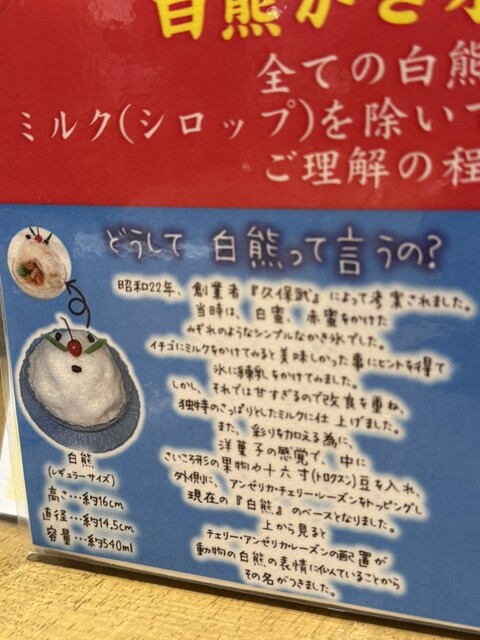 白熊かき氷
全ての白熊
ミルク(シロップ)を除いて
ご理解の程
どうして 白熊って言うの?
昭和22年、創業者『久保武』によって考案されました。
当時は、白蜜、赤蜜をかけた
みぞれのようなシンプルなかき氷でした。
イチゴにミルクをかけてみると美味しかった事にヒントを得て
氷に練乳をかけてみました。
しかし、それでは甘すぎるので改良を重ね、
独特のさっぱりとしたミルクに仕上げました。
また、彩りを加える為に、
洋菓子の感覚で、中に
さいころ形の果物や十六寸(トロクスン)豆を入れ、
外側に、アンゼリカ・チェリー・レーズンをトッピングし
現在の『白熊』のベースとなりました。
上から見ると
チェリー・アンゼリカ・レーズンの配置が
動物の白熊の表情に似ていることから
その名がつきました。
白熊
(レギュラーサイズ)
高さ…約16cm
直径…約14.5cm
容量…約540ml